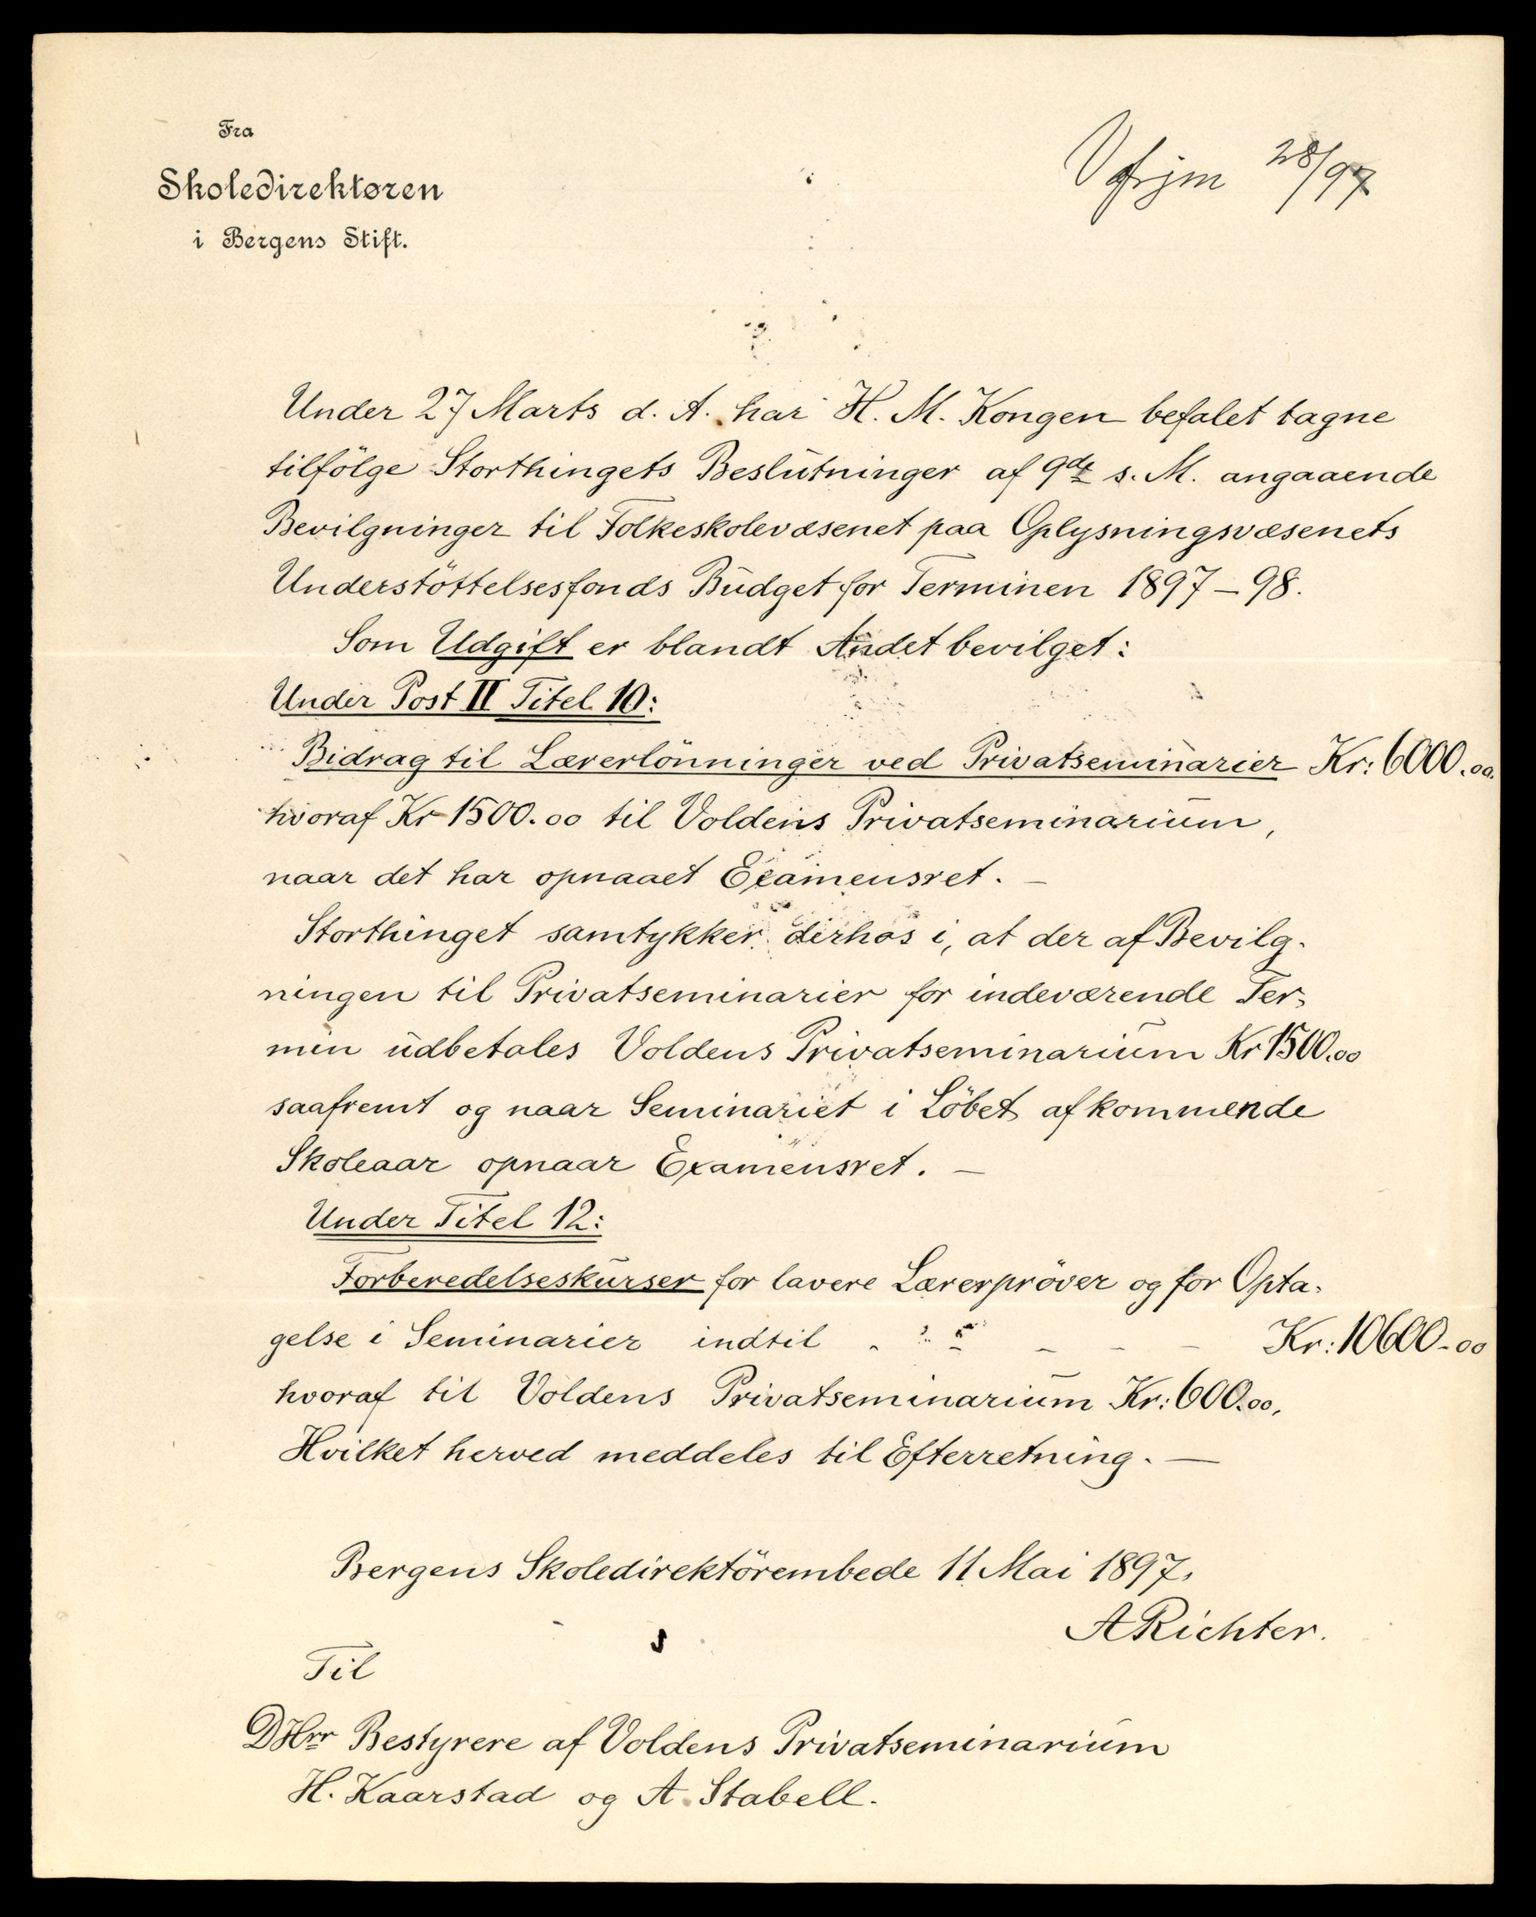 Fra
Skoledirektøren
i Bergens Stift.
28/97
Under 27 Marts d. A. har H. M. Kongen befalet tagne
tilfölge Storthingets Beslutninger af 9de s. M. angaaende
Bevilgninger til Folkeskolevæsenet paa Oplysningsvæsenets
Understöttelsesfonds Budget for Terminen 1897–98.
Som Udgift er blandt Andet bevilget:
Under Post II Titel 10:
Bidrag til Lærerlönninger ved Privatseminarier Kr: 6000.00.
hvoraf Kr 1500.00 til Voldens Privatseminarium,
naar det har opnaaet Examensret. –
Storthinget samtykker derhos i, at der af Bevilg-
ningen til Privatseminarier for indeværende Ter-
min udbetales Voldens Privatseminarium Kr 1500.00
saafremt og naar Seminariet i Löbet af kommende
Skoleaar opnaar Examensret. –
Under Titel 12:
Forberedelseskurser for lavere Lærerpröver og for Opta-
gelse i Seminarier indtil - - - - - - Kr: 10600-00
hvoraf til Voldens Privatseminarium Kr: 600.00,
Hvilket herved meddeles til Efterretning. –
Bergens Skoledirektörembede 11 Mai 1897.
A Richter.
Til
DHrr Bestyrere af Voldens Privatseminarium
H. Kaarstad og A. Stabell.